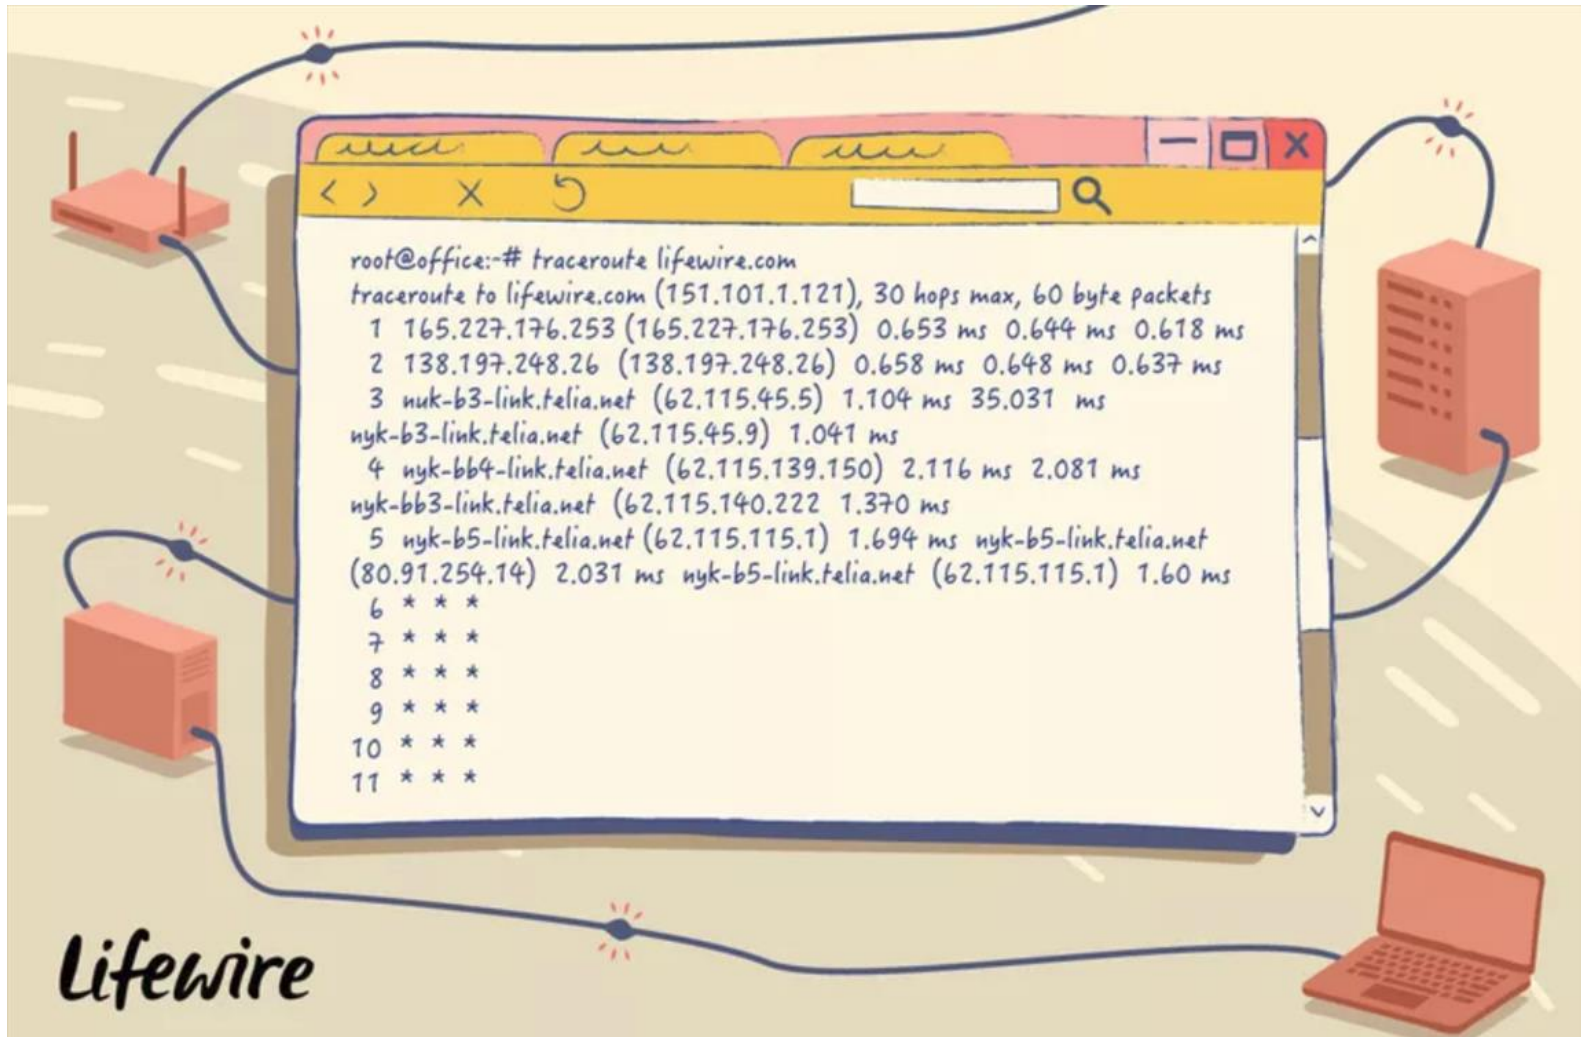 root@office:~# traceroute lifewire.com
traceroute to lifewire.com (151.101.1.121), 30 hops max, 60 byte packets
1 165.227.176.253 (165.227.176.253) 0.653 ms 0.644 ms 0.618 ms
2 138.197.248.26 (138.197.248.26) 0.658 ms 0.648 ms 0.637 ms
3 nuk-b3-link.telia.net (62.115.45.5) 1.104 ms 35.031 ms
nyk-b3-link.telia.net (62.115.45.9) 1.041 ms
4 nyk-bb4-link.telia.net (62.115.139.150) 2.116 ms 2.081 ms
nyk-bb3-link.telia.net (62.115.140.222 1.370 ms
5 nyk-b5-link.telia.net (62.115.115.1) 1.694 ms nyk-b5-link.telia.net
(80.91.254.14) 2.031 ms nyk-b5-link.telia.net (62.115.115.1) 1.60 ms
6 * * *
7 * * *
8 * * *
9 * * *
10 * * *
11 * * *
Lifewire